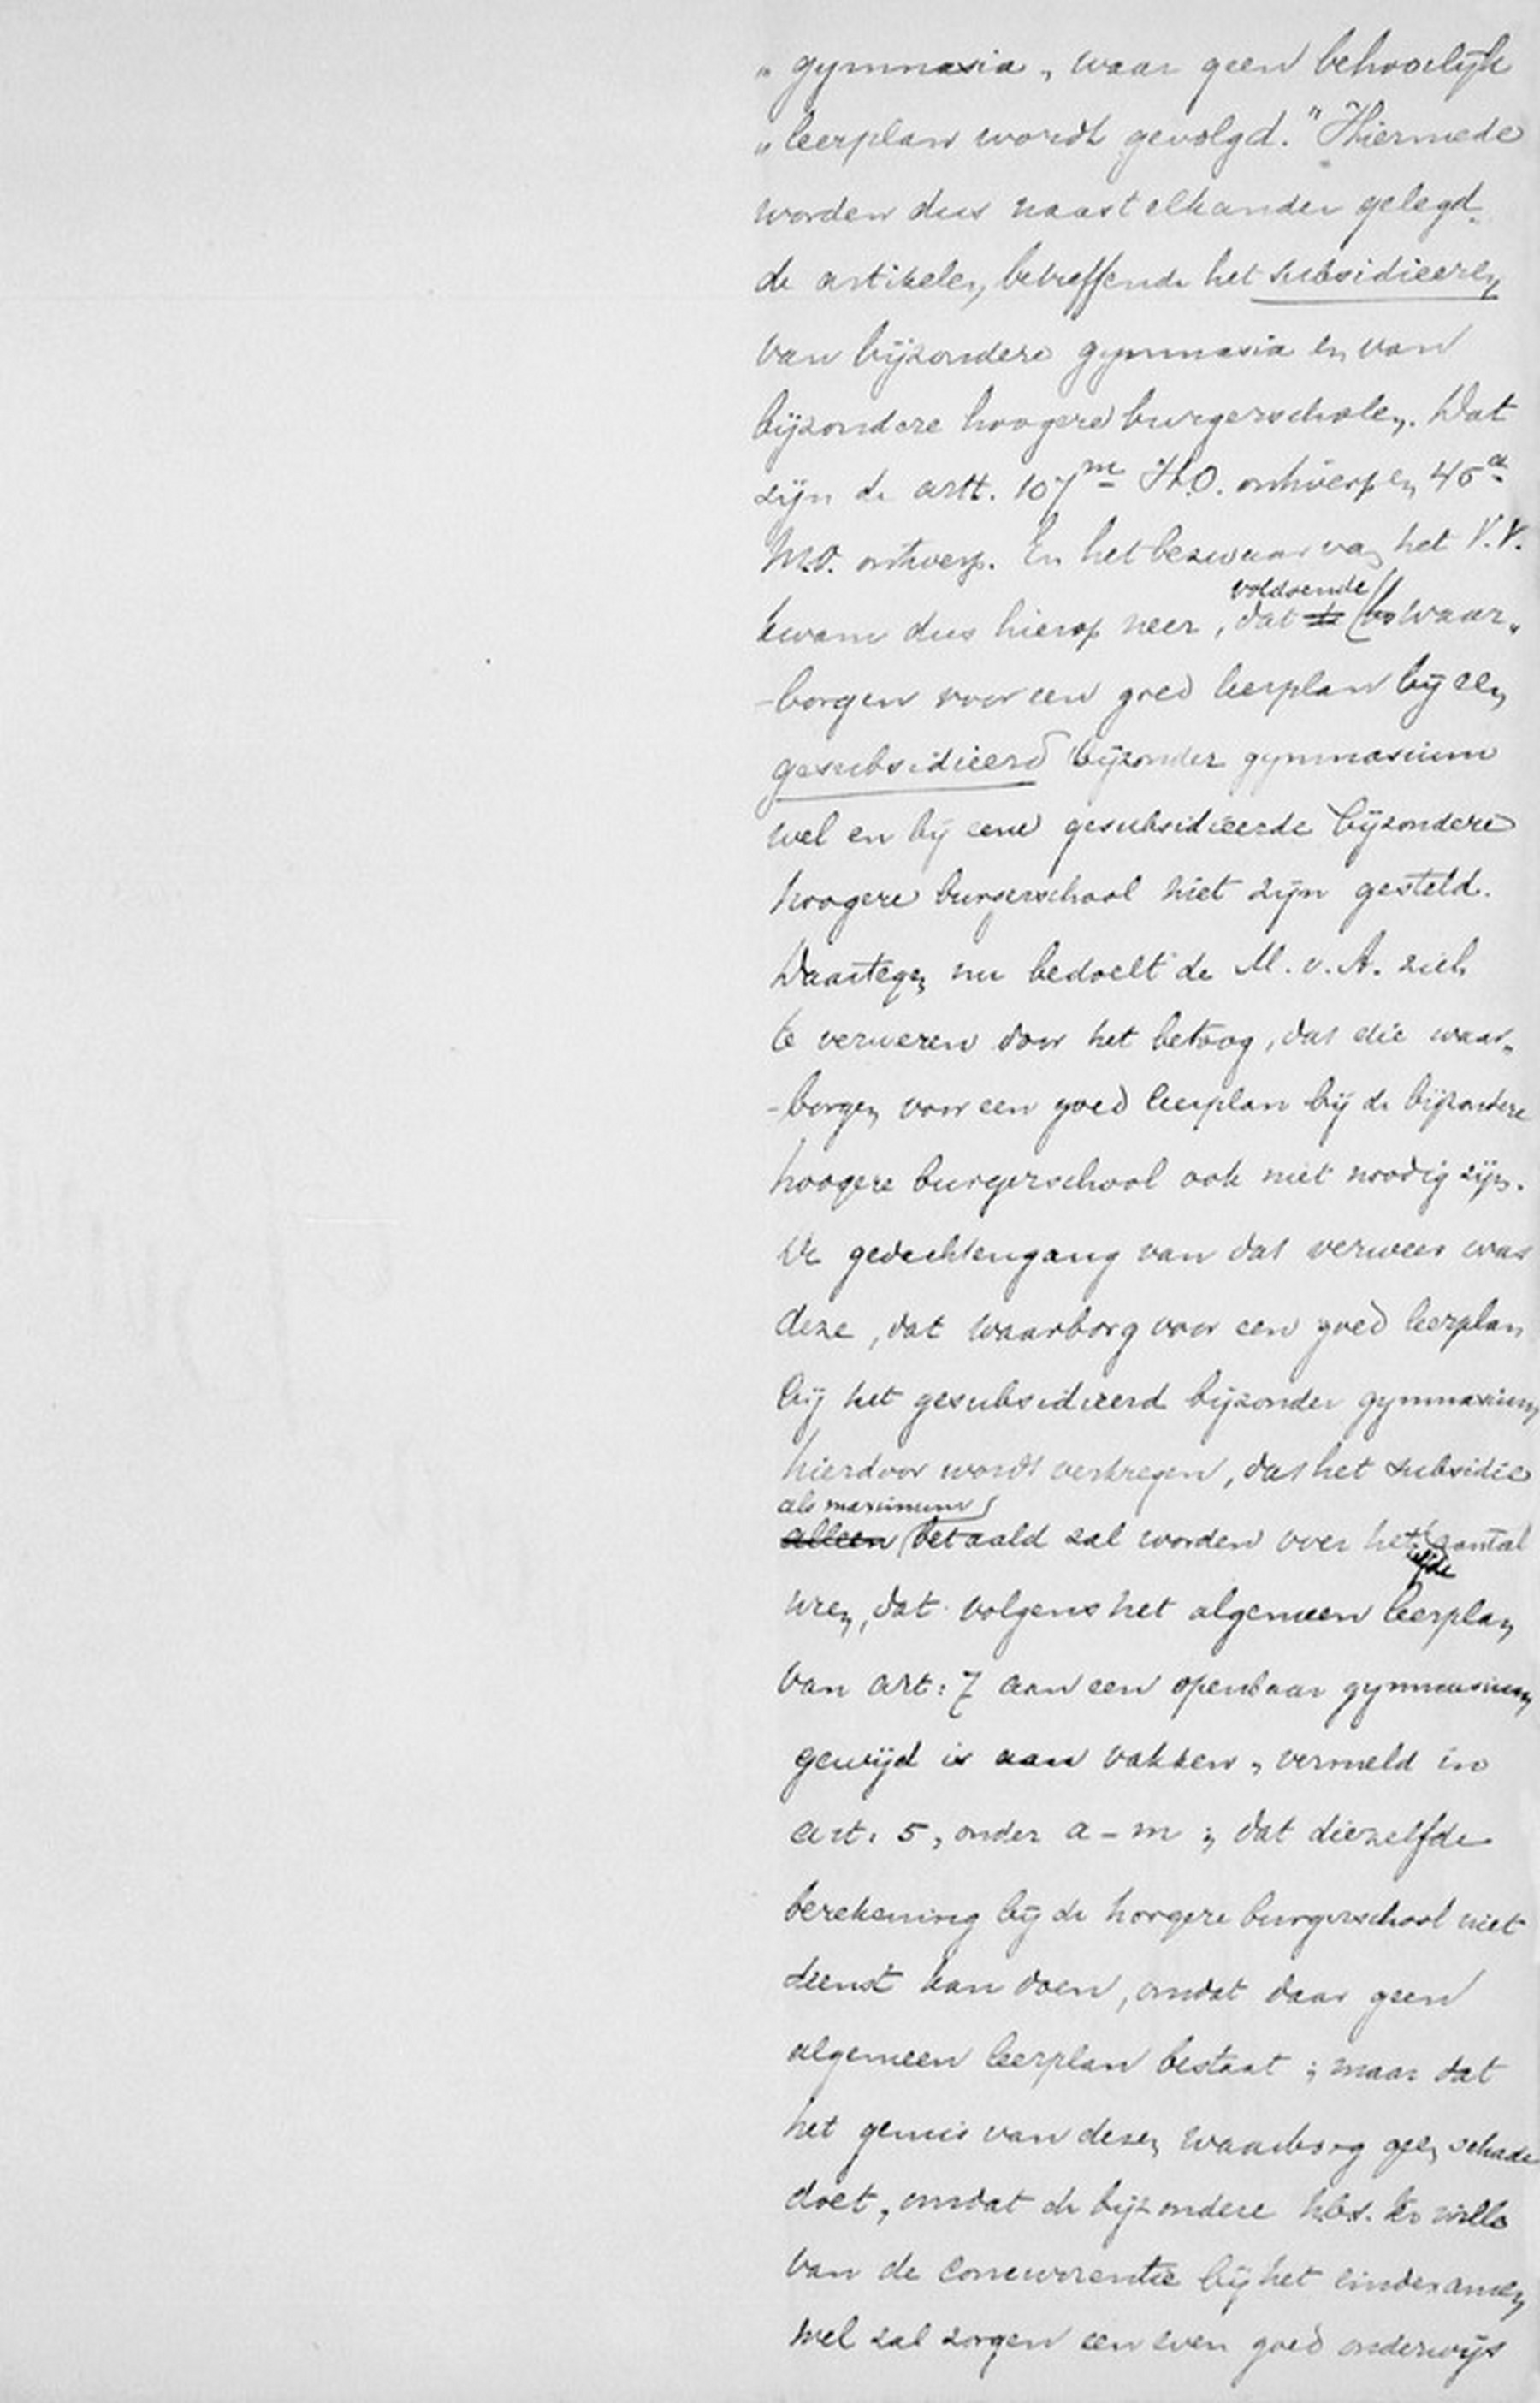 „gymnasia, waar geen behoorlijk
„leerplan wordt gevolgd." Hiermede
worden dus naast elkander gelegd
de artikelen, betreffende het subsidieeren
van bijzondere gymnasia en van
bijzondere hoogere burgerscholen. Dat
zijn de artt. 107m H.O. ontwerp en 45a
M.O. ontwerp. En het bezwaar van het V.V.
voldoende
kwam dus hierop neer, dat waar„
-borgen voor een goed leerplan bij een
gesubsidieerd bijzonder gymnasium
wel en bij eene gesubsidieerde bijzondere
hoogere burgerschool niet zijn gesteld.
Daartegen nu bedoelt de M.v.A. zich
te verweren door het betoog, dat die waar„
-borgen voor een goed leerplan bij de bijzondere
hoogere burgerschool ook niet noodig zijn.
De gedachtengang van dat verweer was
deze, dat waarborg voor een goed leerplan
bij het gesubsidieerd bijzonder gymnasium
hierdoor wordt verkregen, dat het subsidie
als maximum
alleen betaald zal worden over het aantal
uren, dat volgens het algemeen leerplan
van art: 7 aan een openbaar gymnasium
gewijd is aan vakken, vermeld in
art. 5, onder a-m; dat diezelfde
berekening bij de hoogere burgerschool niet
dienst kan doen, omdat daar geen
algemeen leerplan bestaat; maar dat
het gemis van dezen waarborg geen schade
doet, omdat de bijzondere h.b.s. ter wille
van de concurrentie bij het eindexamen
wel zal zorgen een even goed onderwijs